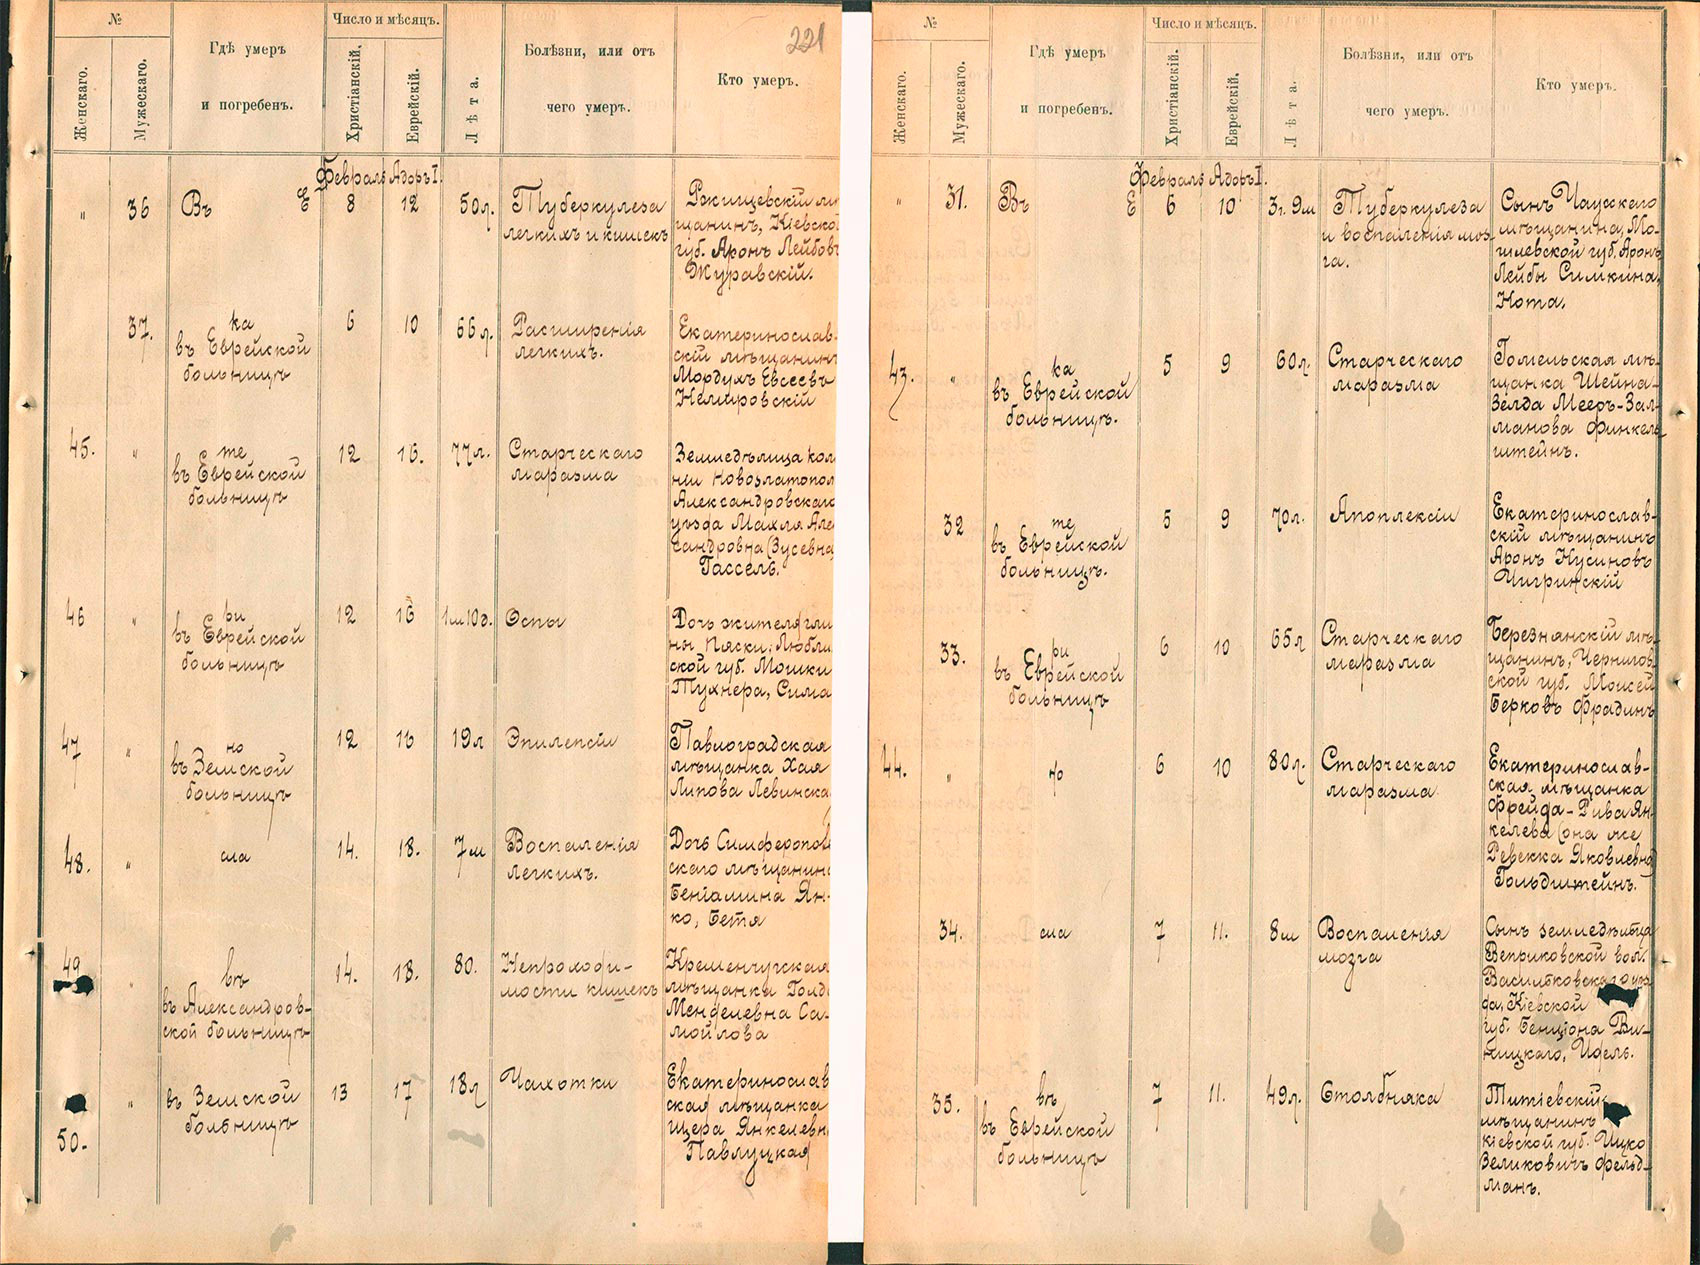 №
Женскаго.
Мужескаго.
Гдѣ умеръ
и погребенъ.
Число и мѣсяцъ.
Христіанскій.
Еврейскій.
Лѣта.
Болѣзни, или отъ
чего умеръ.
Кто умеръ.
221
Февраль Адоръ I.
„ 36 Въ Е 8 12 50л.
Туберкулеза
легкихъ и кишекъ
Ржищевскій мѣ
щанинъ, Кіевско
губ. Аронъ Лейбовъ
Журавскій.
37. ка
въ Еврейской
больницѣ
6 10 66л.
Расширенія
легкихъ.
Екатеринослав-
скій мѣщанинъ
Мордухъ Евсеевъ
Немировскій
45. „ те
въ Еврейской
больницѣ
12 16. 77л.
Старческаго
маразма
Земледѣлица кол
ніи Новозлатопол
Александровскаго
уѣзда Махля Але
сандровна (Зусевна
Гассель.
46 „ ри
въ Еврейской
больницѣ
12 16 1м10д.
Оспы
Дочь жителя гми
ны Пяски, Любли
ской губ. Мошки
Тухнера, Сима
47 „ но
въ Земской
больницѣ
12 16 19л
Эпилепсіи
Павлоградская
мѣщанка Хая
Липова Левинска
48. „ сла
14. 18. 7м
Воспаленія
легкихъ.
Дочь Симферопол
скаго мѣщанина
Беніамина Ян-
ко, Бетя
49 „ въ
въ Александров-
ской больницѣ
14. 18. 80.
Непроходи-
мости кишекъ
Кременчугская
мѣщанка Голд
Менделевна Са-
мойлова
50. „
въ Земской
больницѣ
13 17 18л
Чахотки
Екатеринослав
ская мѣщанка
Щера Янкелевн
Павлуцкая
№
Женскаго.
Мужескаго.
Гдѣ умеръ
и погребенъ.
Число и мѣсяцъ.
Христіанскій.
Еврейскій.
Лѣта.
Болѣзни, или отъ
чего умеръ.
Кто умеръ.
Февраль Адоръ I.
„ 31. Въ Е 6 10 3г. 9м
Туберкулеза
и воспаленія моз-
га.
Сынъ Чаусскаго
мѣщанина, Мо-
гилевской губ. Аронъ
Лейбы Симкина,
Нота.
43. „ ка
въ Еврейской
больницѣ.
5 9 60л.
Старческаго
маразма
Гомельская мѣ-
щанка Шейна-
Зелда Мееръ-Зал-
манова Финкель
штейнъ.
32 те
въ Еврейской
больницѣ.
5 9 70л.
Апоплексіи
Екатеринослав-
скій мѣщанинъ
Аронъ Нусиновъ
Чигринскій
33. ри
въ Еврейской
больницѣ
6 10 65л
Старческаго
маразма
Березнянскій мѣ-
щанинъ, Чернигов-
ской губ. Моисей
Берковъ Фрадинъ
44. „
6 10 80л.
Старческаго
маразма
Екатеринослав-
ская мѣщанка
Фрейда-Рива Ян-
келева (она же
Ревекка Яковлевна)
Гольдштейнъ.
34. сла
7 11. 8м
Воспаленія
мозга
Сынъ земледѣльца
Веприковской вол.
Васильковскаго уѣз
да, Кіевской
губ. Бенціона Ви-
ницкаго, Идель.
35. въ
въ Еврейской
больницѣ
7 11. 49л.
Столбняка
Титіевскій
мѣщанинъ
Кіевской губ. Ицко
Зеликовичъ Фельд-
манъ.